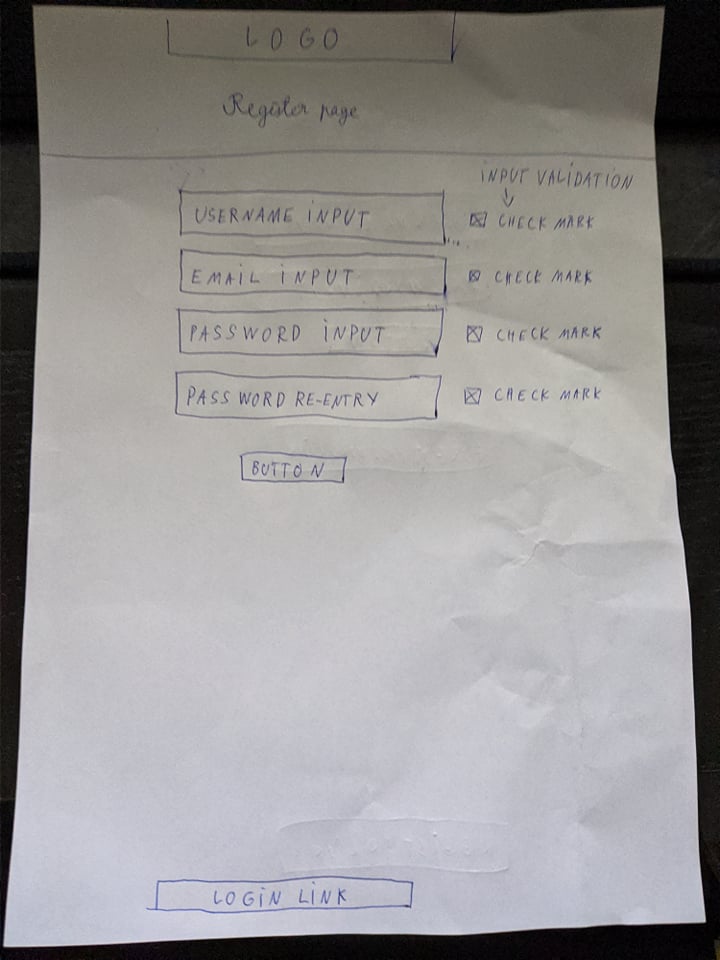 LOGO
Register page
INPUT VALIDATION
USERNAME INPUT CHECK MARK
EMAIL INPUT CHECK MARK
PASSWORD INPUT CHECK MARK
PASSWORD RE-ENTRY CHECK MARK
BUTTON
LOGIN LINK